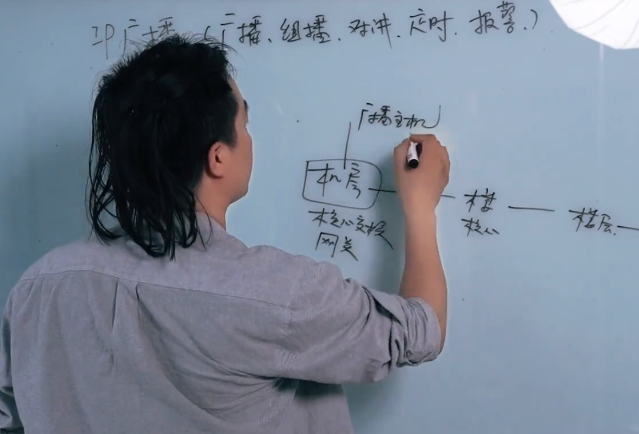 IP广播（广播、组播、对讲、定时、报警、）
广播主机
机房
核心交换
网关
楼
核心
楼层